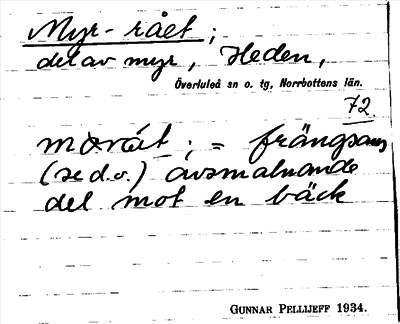 Myr-rået;
del av myr, Heden,
Överluleå sn o. tg, Norrbottens län.
72
= frängsaus
(se d.o.) avsmalnande
del mot en bäck
GUNNAR PELLIJEFF 1934.